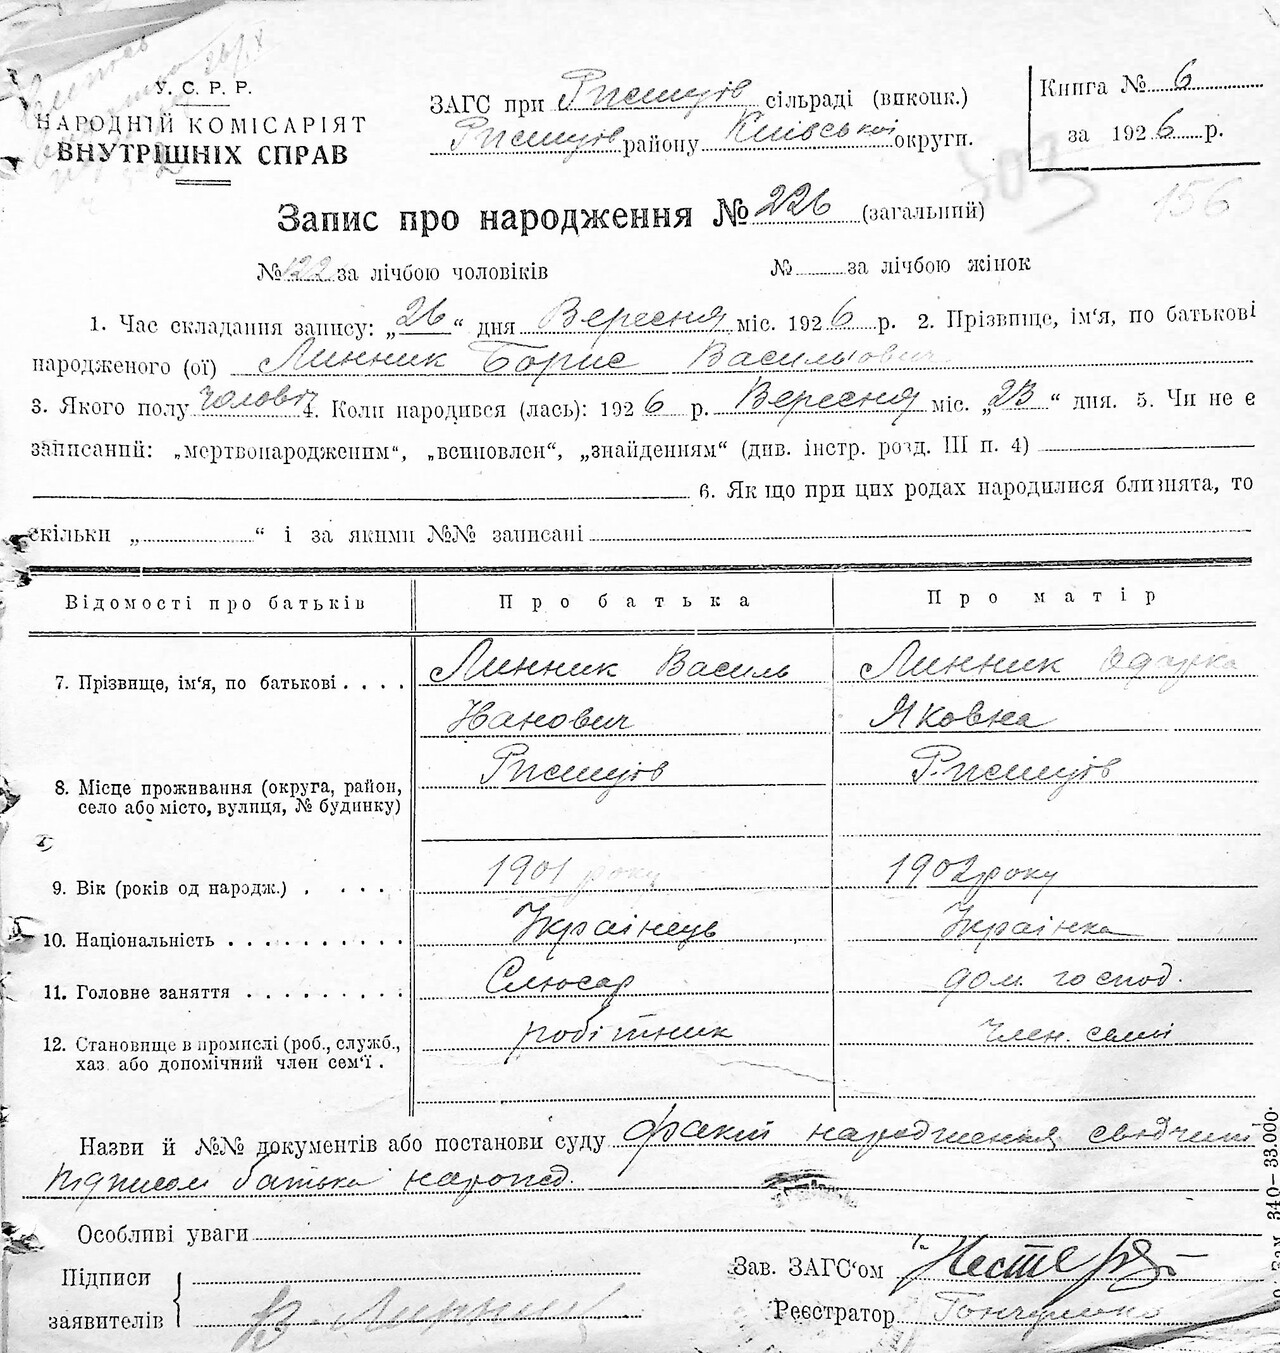 У. С. Р. Р.
НАРОДНІЙ КОМІСАРІЯТ
ВНУТРІШНІХ СПРАВ
ЗАГС при Ржищів сільраді (виконк.)
Ржищів району Київської округи.
Книга № 6
за 1926 р.
156
Запис про народження № 226 (загальний)
№ 122 за лічбою чоловіків № за лічбою жінок
1. Час складання запису: „26“ дня Вересня міс. 1926 р. 2. Прізвище, ім'я, по батькові
народженого (ої) Линник Борис Васильович
3. Якого полу чоловіч 4. Коли народився (лась): 1926 р. Вересня міс. „23“ дня. 5. Чи не є
записаний: „мертвонародженим“, „всиновлен“, „знайденням“ (див. інстр. розд. III п. 4)
6. Якщо при цих родах народилися близнята, то
скільки „ “ і за якими №№ записані
Відомості про батьків Про батька Про матір
7. Прізвище, ім'я, по батькові . . . . Линник Василь Линник
Іванович Яковна
8. Місце проживання (округа, район, село або місто, вулиця, № будинку) Ржищів Ржищів
9. Вік (років од народж.) . . . . 1901 року 1902 року
10. Національність . . . . . . . . . . Українець Українка
11. Головне заняття . . . . . . . . . Слюсар дом. господ.
12. Становище в промислі (роб., служб., хаз. або допомічний член сем'ї . робітник член. семї
Назви й №№ документів або постанови суду факт народження свідчить
підписом батька
Особливі уваги
Підписи
заявителів В. Линник
Зав. ЗАГС'ом
Реєстратор
340–33.000.